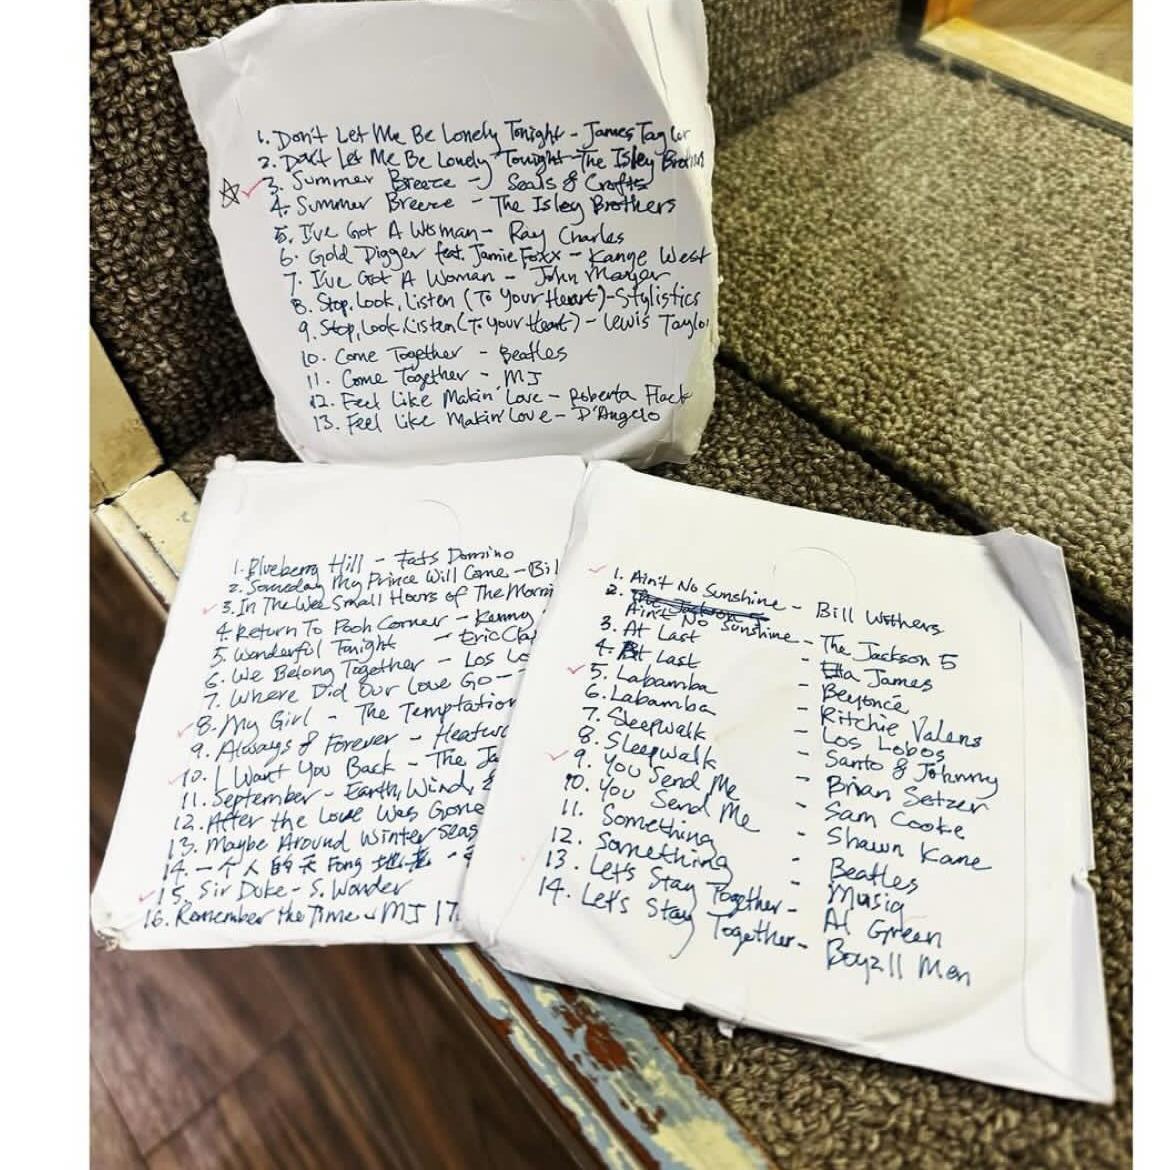 1. Don't Let Me Be Lonely Tonight - James Taylor
2. Don't Let Me Be Lonely Tonight - The Isley Brothers
3. Summer Breeze - Seals & Crofts
4. Summer Breeze - The Isley Brothers
5. I've Got A Woman - Ray Charles
6. Gold Digger feat. Jamie Foxx - Kanye West
7. I've Got A Woman - John Mayer
8. Stop, Look, Listen (To Your Heart) - Stylistics
9. Stop, Look, Listen (To Your Heart) - Lewis Taylor
10. Come Together - Beatles
11. Come Together - MJ
12. Feel Like Makin' Love - Roberta Flack
13. Feel Like Makin' Love - D'Angelo
1. Blueberry Hill - Fats Domino
2. Someday My Prince Will Come - Bil
3. In The Wee Small Hours of The Morni
4. Return To Pooh Corner - Kenny
5. Wonderful Tonight - Eric Cla
6. We Belong Together - Los Lo
7. Where Did Our Love Go -
8. My Girl - The Temptation
9. Always & Forever - Heatw
10. I Want You Back - The Ja
11. September - Earth, Wind, &
12. After the Love Was Gone
13. Maybe Around Winter Seas
14. 一个人的天 Fong 地老 -
15. Sir Duke - S. Wonder
16. Remember the Time - MJ 17.
1. Ain't No Sunshine - Bill Withers
2. The Jackson 5
Ain't No Sunshine - The Jackson 5
3. At Last - Etta James
4. At Last - Beyoncé
5. Labamba - Ritchie Valens
6. Labamba - Los Lobos
7. Sleepwalk - Santo & Johnny
8. Sleepwalk - Brian Setzer
9. You Send Me - Sam Cooke
10. You Send Me - Shawn Kane
11. Something - Beatles
12. Something - Musiq
13. Let's Stay Together - Al Green
14. Let's Stay Together - Boyz II Men